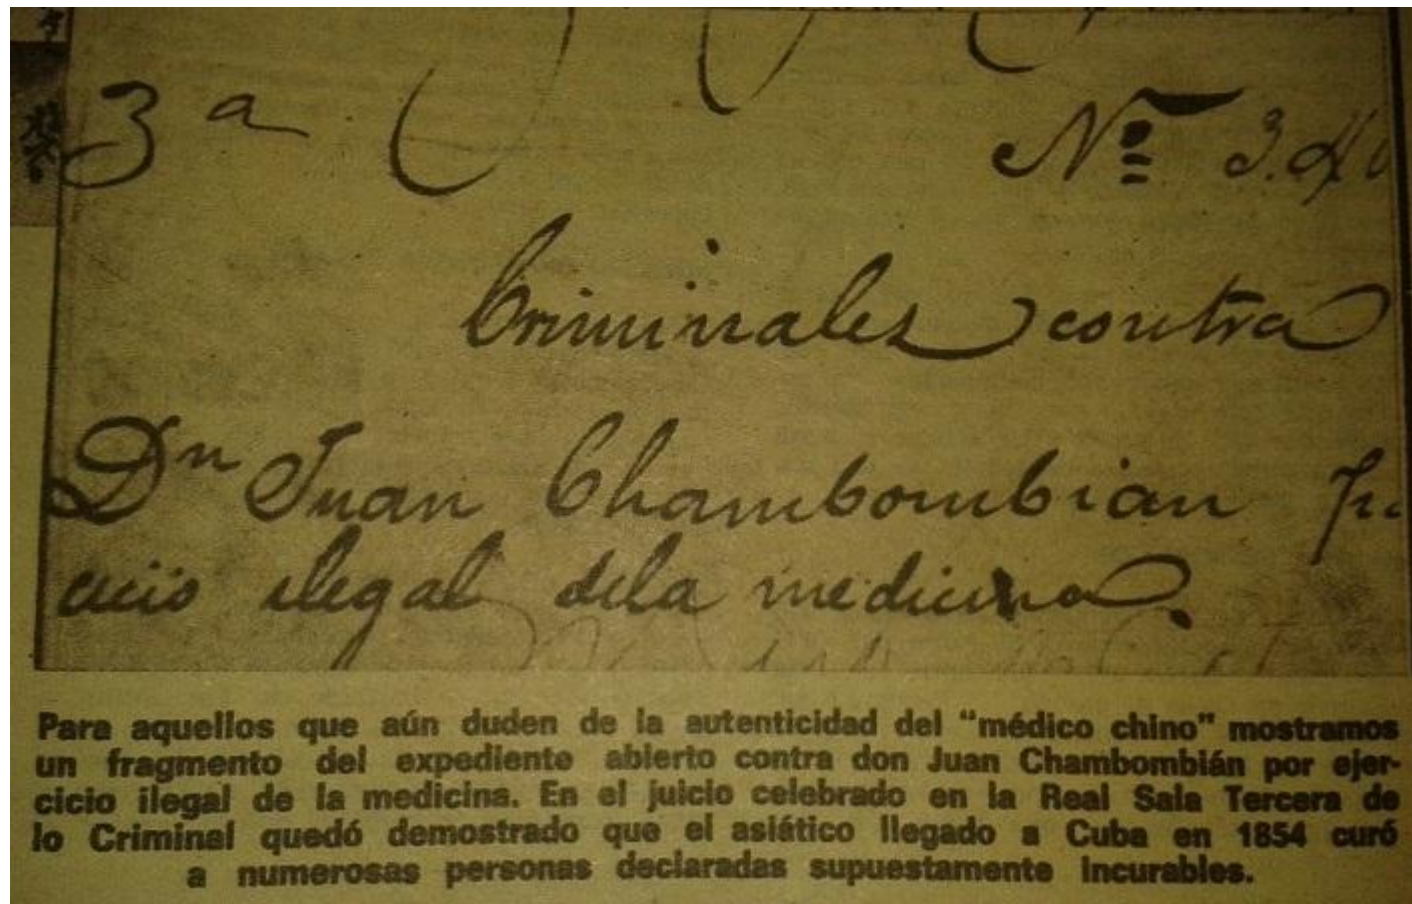 3ª
Nº 3.
Criminales contra
Dn Juan Chambombian
cicio ilegal dela medicina.
Para aquellos que aún duden de la autenticidad del "médico chino" mostramos
un fragmento del expediente abierto contra don Juan Chambombián por ejer-
cicio ilegal de la medicina. En el juicio celebrado en la Real Sala Tercera de
lo Criminal quedó demostrado que el asiático llegado a Cuba en 1854 curó
a numerosas personas declaradas supuestamente incurables.